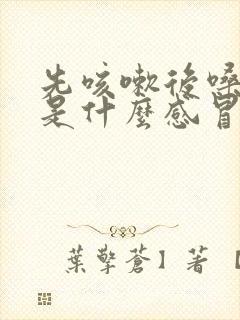 先咳嗽後嗓
是什麼感冒
葉擎蒼】著【